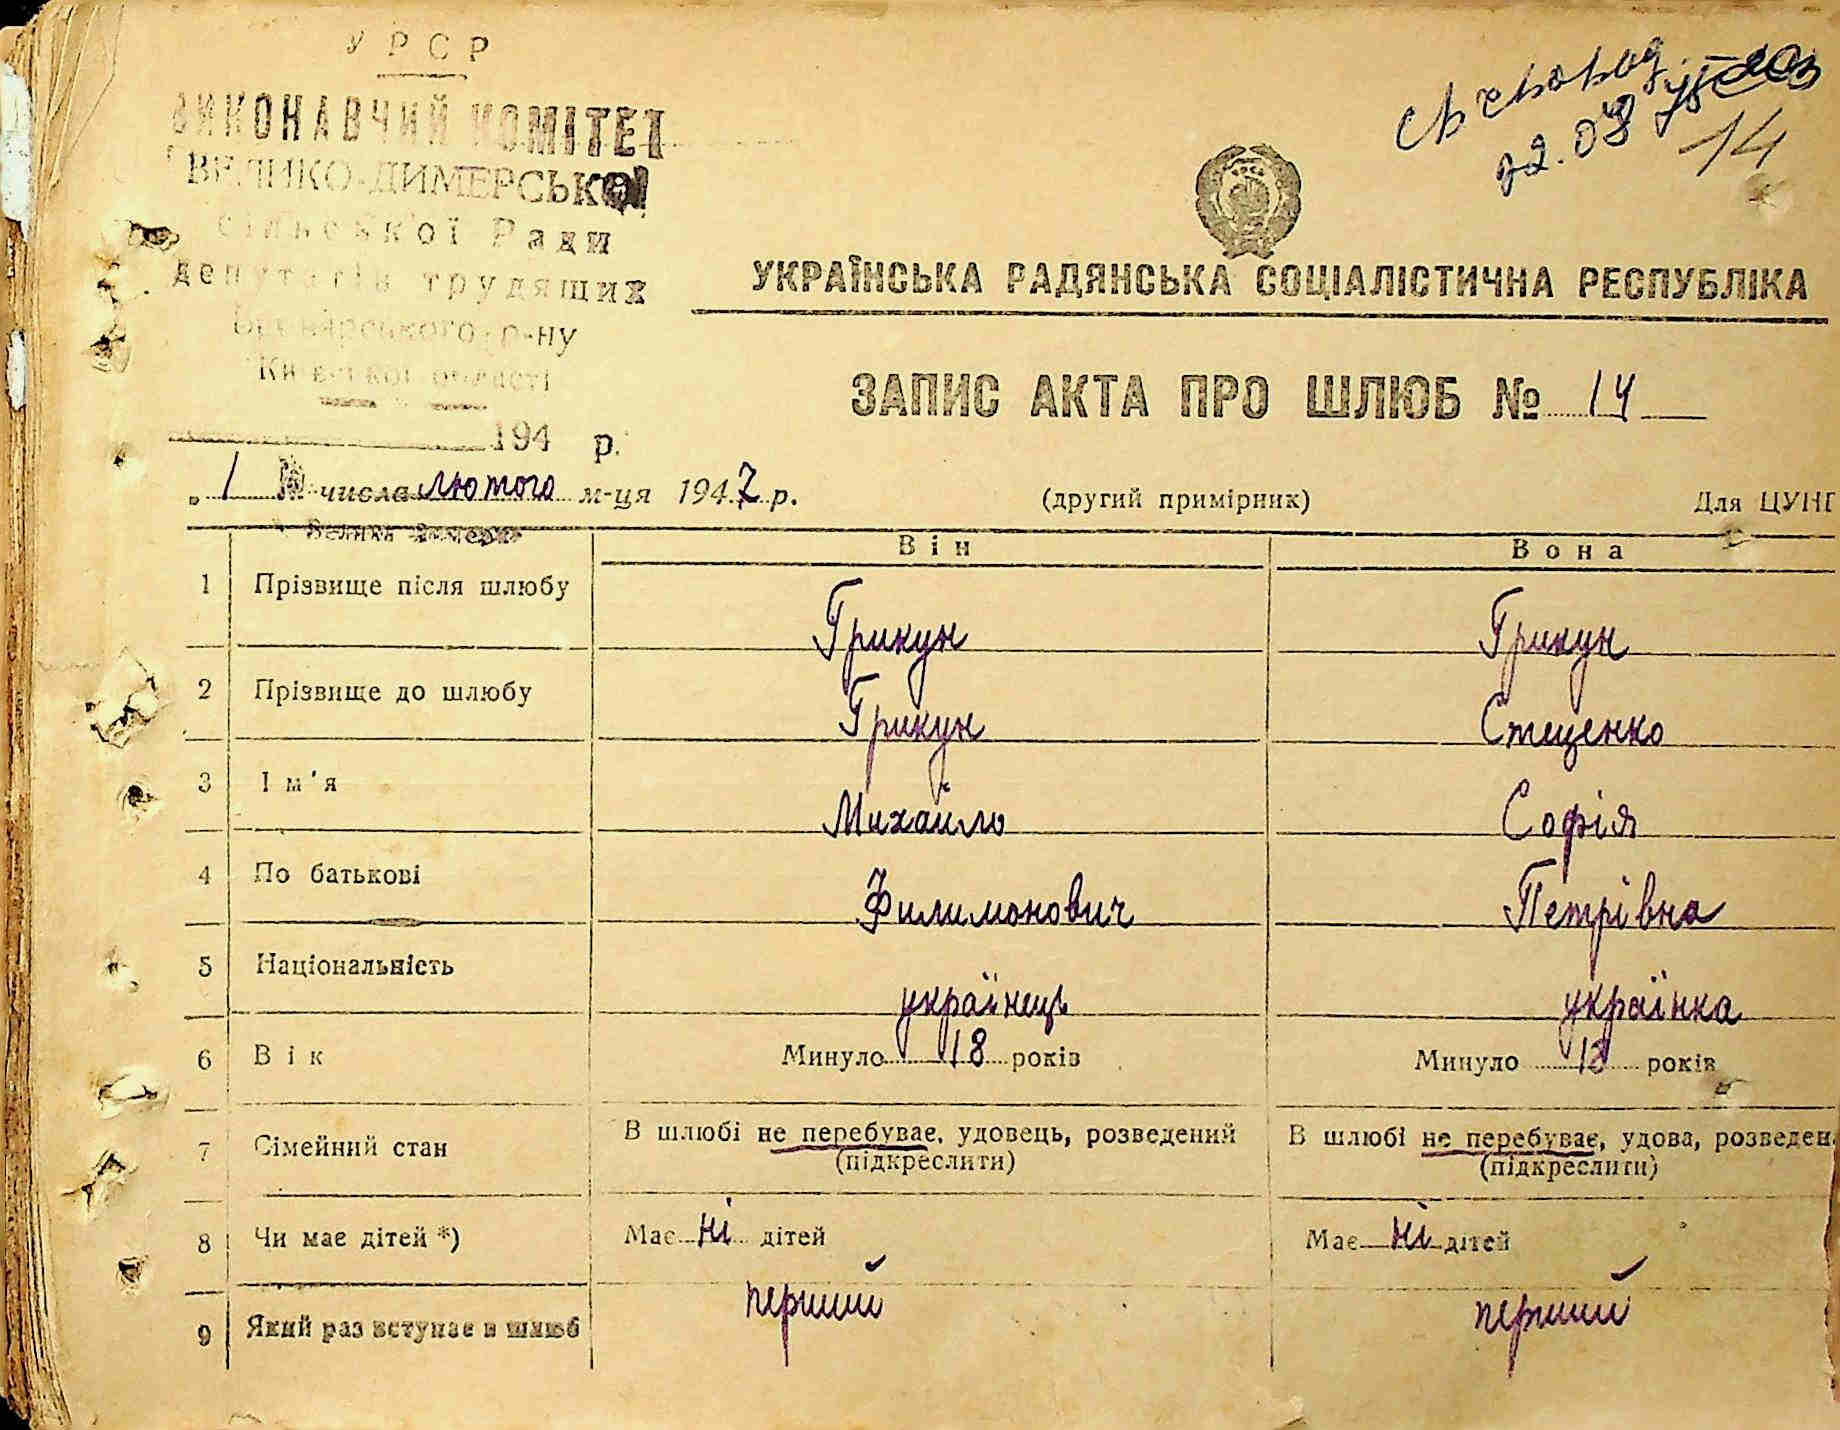 У Р С Р
ВИКОНАВЧИЙ КОМІТЕТ
ВЕЛИКО-ДИМЕРСЬКОЇ
сільської Ради
депутатів трудящих
Броварського р-ну
Київської області
194 р.
22.08
14
УКРАЇНСЬКА РАДЯНСЬКА СОЦІАЛІСТИЧНА РЕСПУБЛІКА
ЗАПИС АКТА ПРО ШЛЮБ № 14
„ 1 числа лютого м-ця 1947 р.
(другий примірник)
Для ЦУНГ
Велика Димерка
Він
Вона
1 Прізвище після шлюбу Грикун Грикун
2 Прізвище до шлюбу Грикун Стеценко
3 Ім'я Михайло Софія
4 По батькові Филимонович Петрівна
5 Національність українець українка
6 Вік Минуло 18 років Минуло 18 років
7 Сімейний стан В шлюбі не перебуває, удовець, розведений В шлюбі не перебуває, удова, розведен
(підкреслити) (підкреслити)
8 Чи має дітей *) Має ні дітей Має ні дітей
9 Який раз вступає в шлюб перший перший